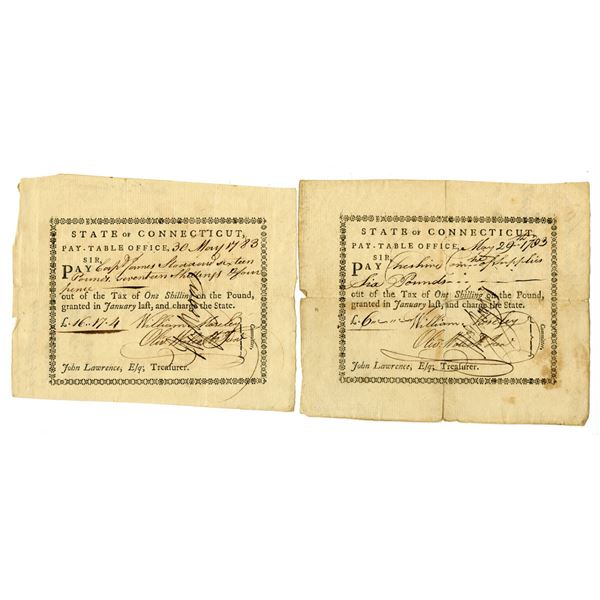 STATE OF CONNECTICUT,
PAY-TABLE OFFICE, 30 May 1783
SIR,
PAY Capt James Stoddard sixteen
Pounds, Seventeen Shillings & four
pence
out of the Tax of One Shilling on the Pound,
granted in January last, and charge the State.
£ 16-17-4
William Moseley
Oliv Wolcott Junr
Committee.
John Lawrence, Esq; Treasurer.
STATE OF CONNECTICUT,
PAY-TABLE OFFICE, May 29th 1783
SIR,
PAY Cheshire
Supplies
Six Pounds
out of the Tax of One Shilling on the Pound,
granted in January last, and charge the State.
£ 6
William Moseley
Oliv Wolcott Junr
Committee.
John Lawrence, Esq; Treasurer.